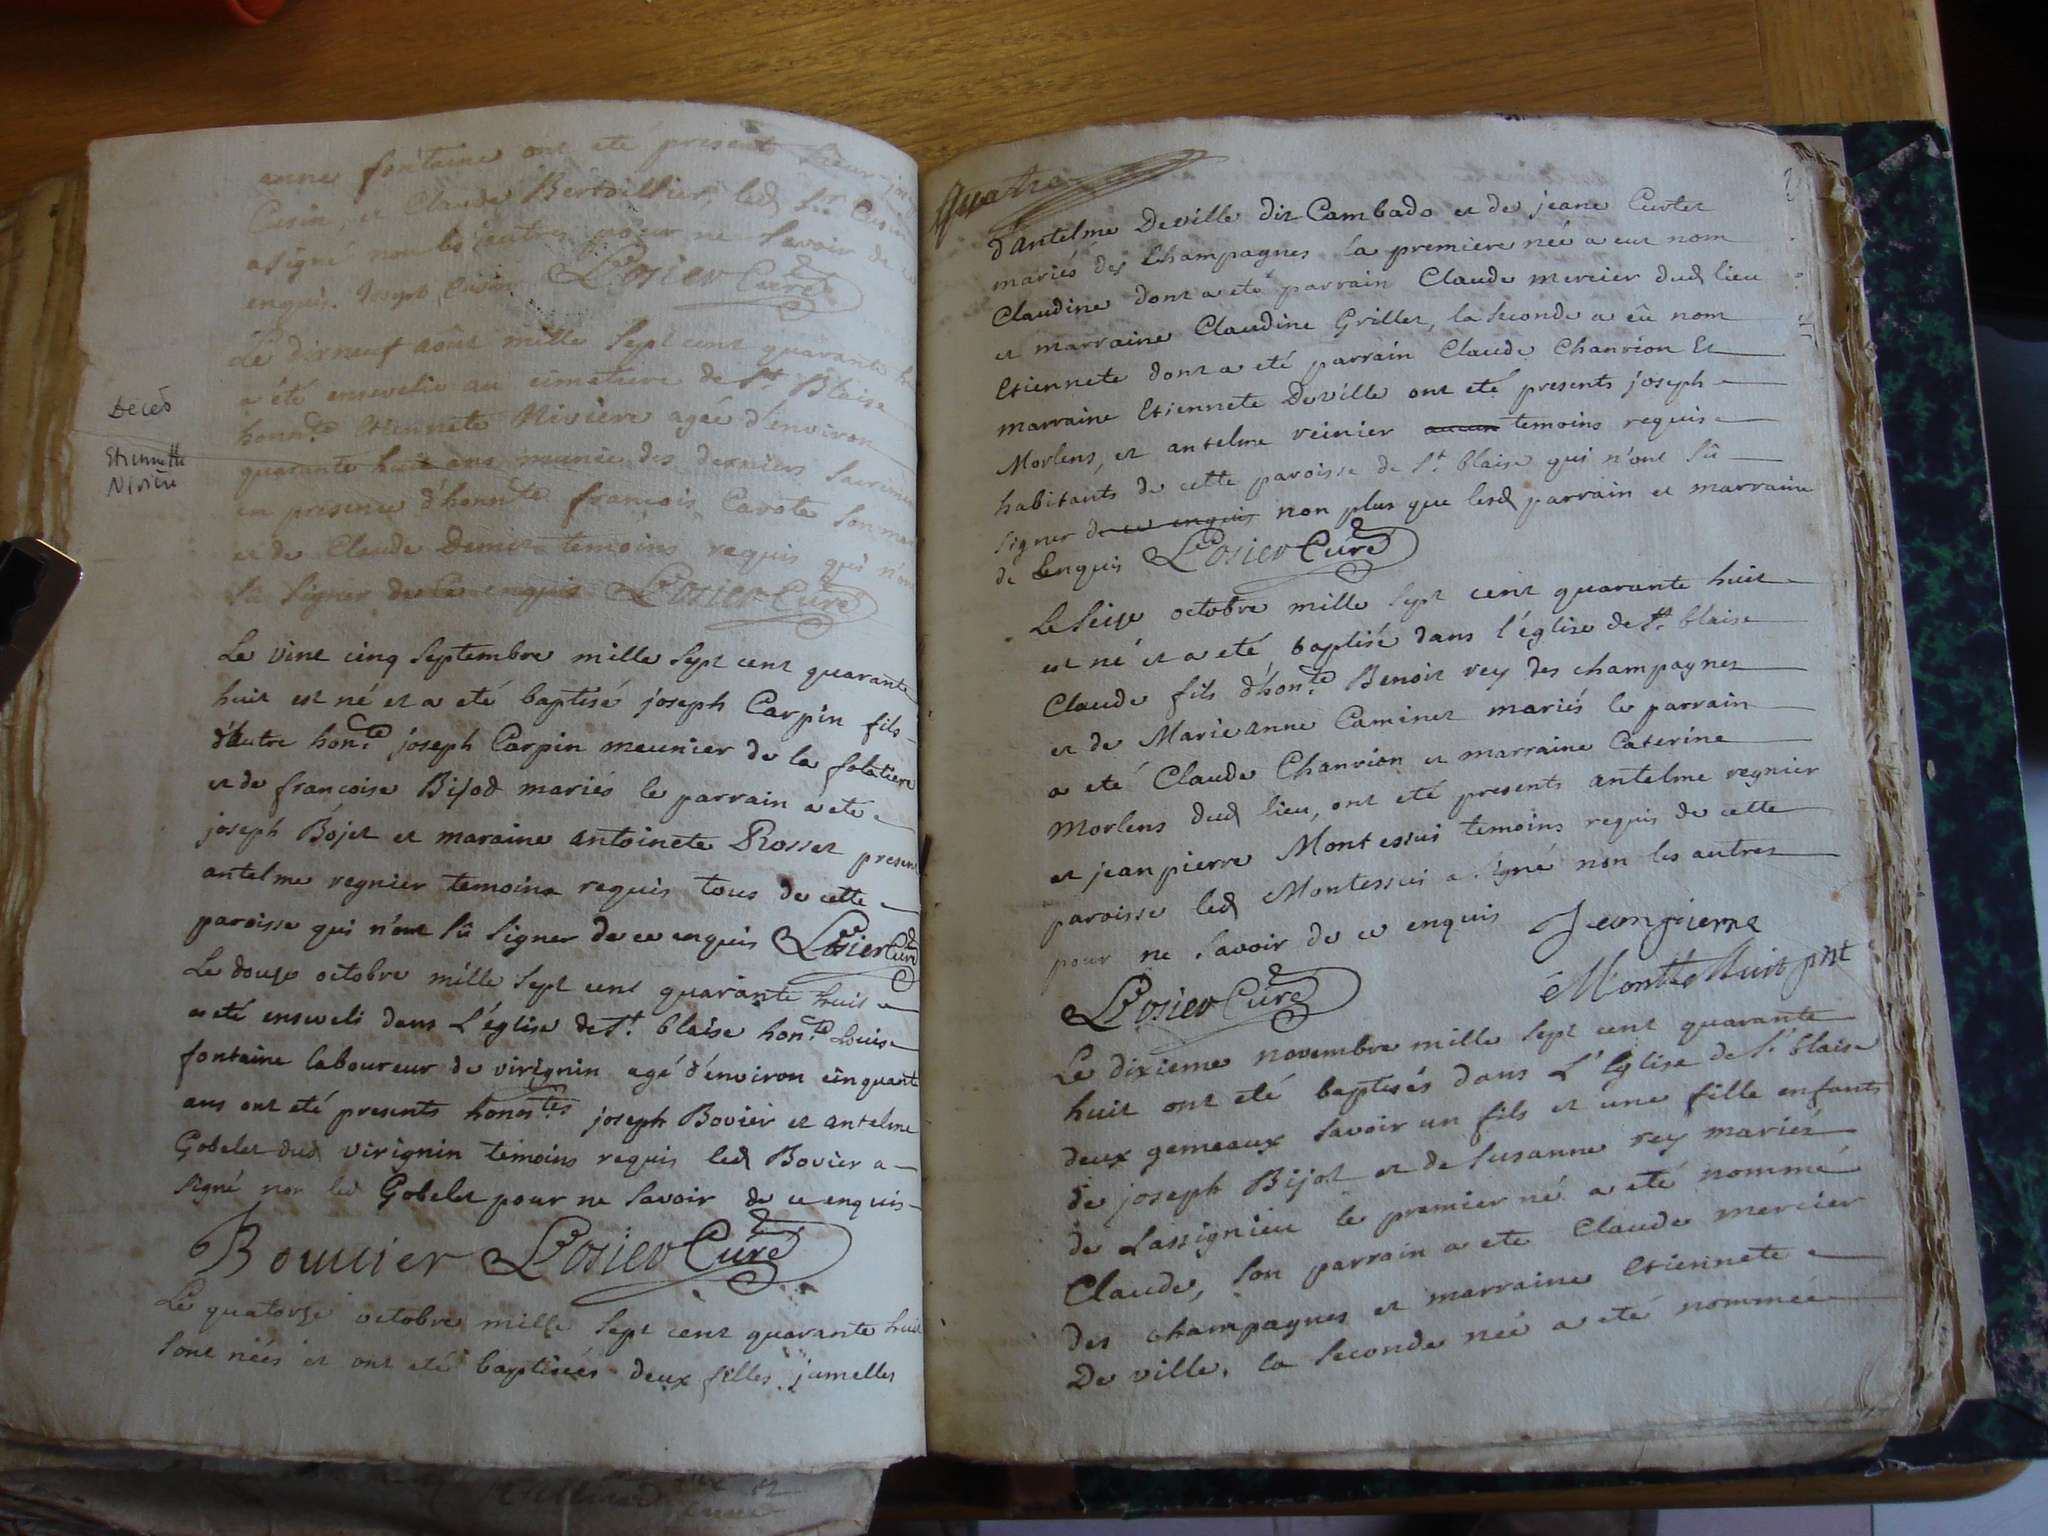 anne fontaine ont eté presents Sieur
Cusin, et Claude Bertillier, led Sr Cusin
a signé non les autres pour ne savoir de ce
enquis. Joseph Cusin Losier Curé
Le dixneuf août mille sept cent quarante
a été ensevelie au cimetiere de St. Blaise
honnte Etiennete Niviere agée d'environ
quarante huit ans munie des derniers Sacremen
en presence d'honnte francois Carote son mari
et de Claude Demiez temoins requis qui n'ont
sû signer de ce enquis Losier Curé
Deces
Etiennette
Nivière
Le vint cinq Septembre mille sept cent quarante
huit est né et a eté baptisé joseph Carpin fils
d'autre honte. joseph Carpin meunier de la folatiere
et de francoise Bijod mariés le parrain a eté
joseph Bojet et maraine antoinete Rosset present
antelme regnier temoins requis tous de cette
paroisse qui n'ont sû signer de ce enquis Losier Curé
Le douze octobre mille sept cent quarante huit
a eté enseveli dans L'église de St. blaise honte. Louis
fontaine laboureur de virignin agé d'environ cinquante
ans ont eté presents honntes joseph Bovier et antelme
Gobelet dud virignin temoins requis led Bovier a
signé non led Gobelet pour ne savoir de ce enquis
Bouvier Losier Curé
Le quatorze octobre mille sept cent quarante huit
sont néés et ont eté baptisées deux filles jumelles
quatre
d'antelme Deville dit Cambado et de jeane Curtet
mariés des Champagnes la premiere néé a eut nom
Claudine dont a eté parrain Claude mercier dud lieu
et marraine Claudine Grillet, la seconde a êû nom
Etiennete dont a eté parrain Claude Chanrion Et
marraine Etiennete Deville ont eté presents joseph
Morlens, et antelme reinier aucun temoins requis
habitants de cette paroisse de St. blaise qui n'ont sû
signer de ce enquis non plus que lesd parrain et marraine
de Lenquis Losier Curé
Le seize octobre mille sept cent quarante huit
est né et a eté baptisé dans l'église de St. blaise
Claude fils d'honte. Benoit rey des champagnes
et de Marieanne Caminet mariés le parrain
a eté Claude Chanrion et marraine Caterine
Morlens dud lieu, ont eté presents antelme regnier
et jean pierre Montessui temoins requis de cette
paroisse led Montessui a signé non les autres
pour ne savoir de ce enquis Jeanpierre
Losier Curé Montessuit pnt
Le dixieme novembre mille sept cent quarante
huit ont eté baptisés dans L'Eglise de St. blaise
deux gemeaux savoir un fils et une fille enfants
de joseph Bijot et de susanne rey mariés
de Lassignieu le premier né a eté nommé
Claude, son parrain a eté Claude mercier
des champagnes et marraine Etiennete
De ville. la seconde néé a eté nommée